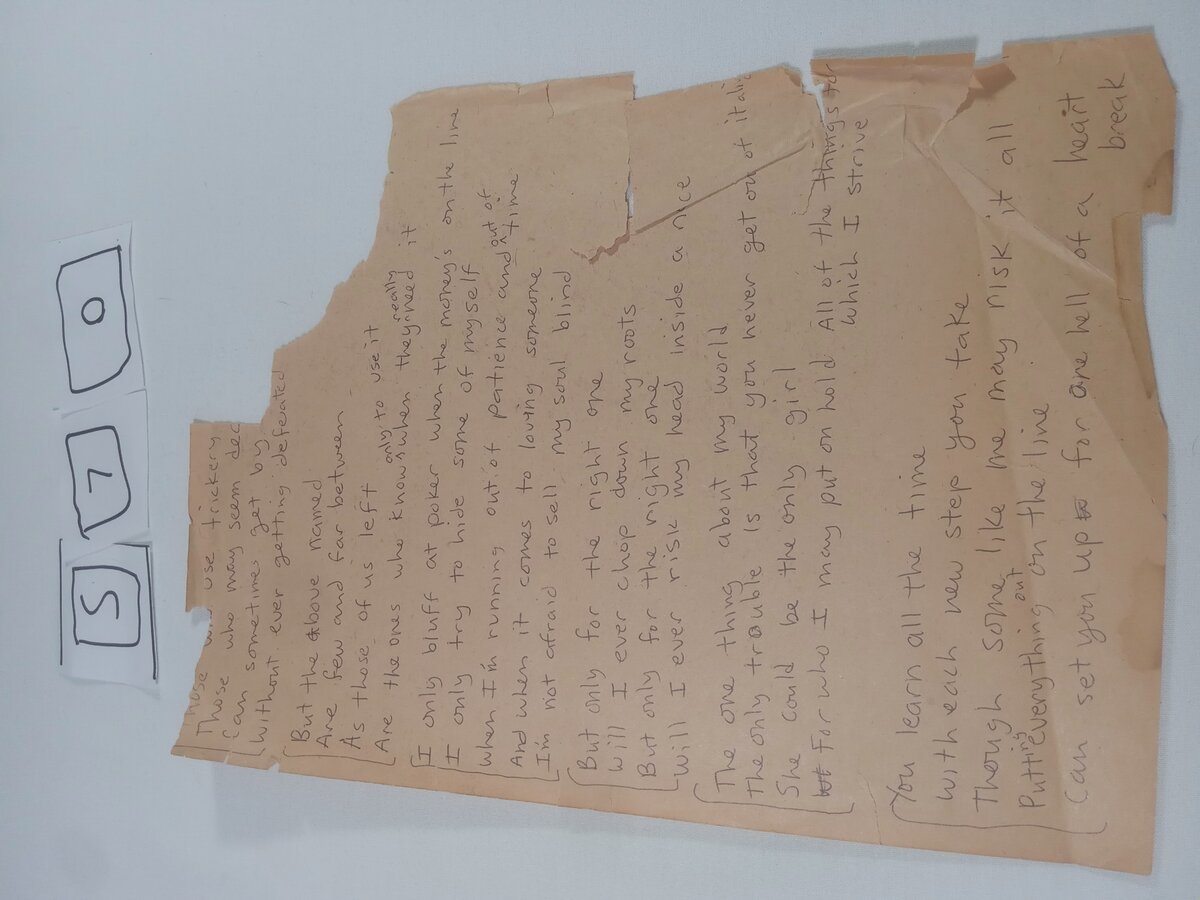 S 7 0
Those use trickery
Those who may seem dec
Can sometimes get by
Without ever getting defeated
But the above named
Are few and far between
As those of us left only to use it
Are the ones who know when they really need it
I only bluff at poker when the money's on the line
I only try to hide some of myself
When I'm running out of patience and out of time
And when it comes to loving someone
I'm not afraid to sell my soul blind
But only for the right one
Will I ever chop down my roots
But only for the right one
Will I ever risk my head inside a nice
The one thing about my world
The only trouble is that you never get out of italic
She could be the only girl
For who I may put on hold All of the things for
which I strive
You learn all the time
With each new step you take
Though some like me may risk it all
Putting out everything on the line
Can set you up for one hell of a heart
break